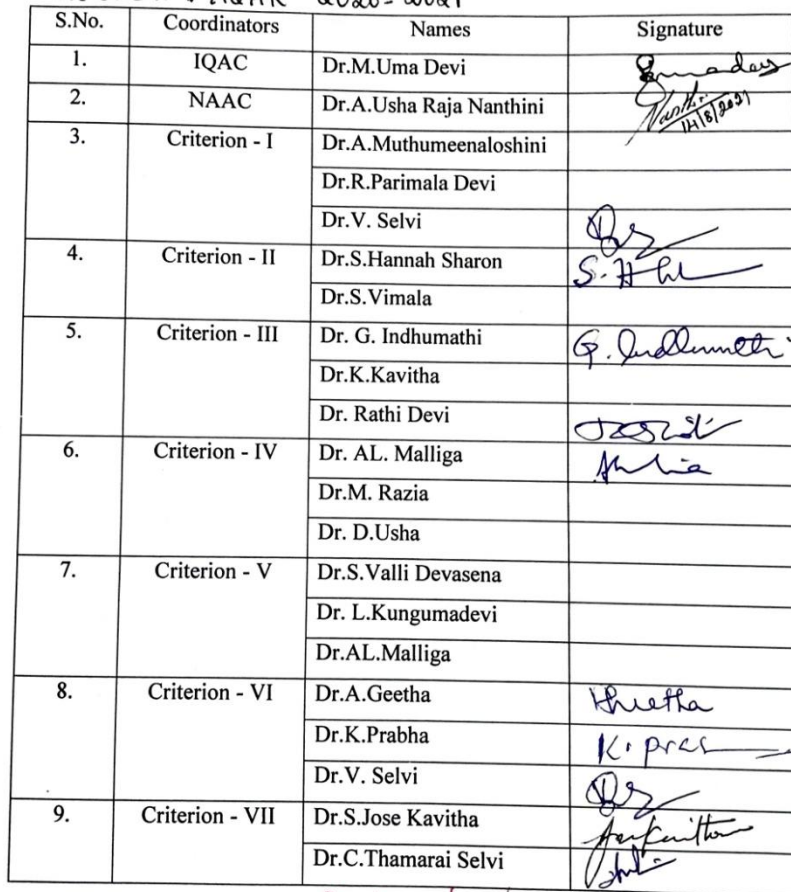 AQAR 2020-2021
S.No. Coordinators Names Signature
1. IQAC Dr.M.Uma Devi
2. NAAC Dr.A.Usha Raja Nanthini
14/8/2021
3. Criterion - I Dr.A.Muthumeenaloshini
Dr.R.Parimala Devi
Dr.V. Selvi
4. Criterion - II Dr.S.Hannah Sharon
Dr.S.Vimala
5. Criterion - III Dr. G. Indhumathi G. Indhumathi
Dr.K.Kavitha
Dr. Rathi Devi
6. Criterion - IV Dr. AL. Malliga
Dr.M. Razia
Dr. D.Usha
7. Criterion - V Dr.S.Valli Devasena
Dr. L.Kungumadevi
Dr.AL.Malliga
8. Criterion - VI Dr.A.Geetha
Dr.K.Prabha
Dr.V. Selvi
9. Criterion - VII Dr.S.Jose Kavitha
Dr.C.Thamarai Selvi